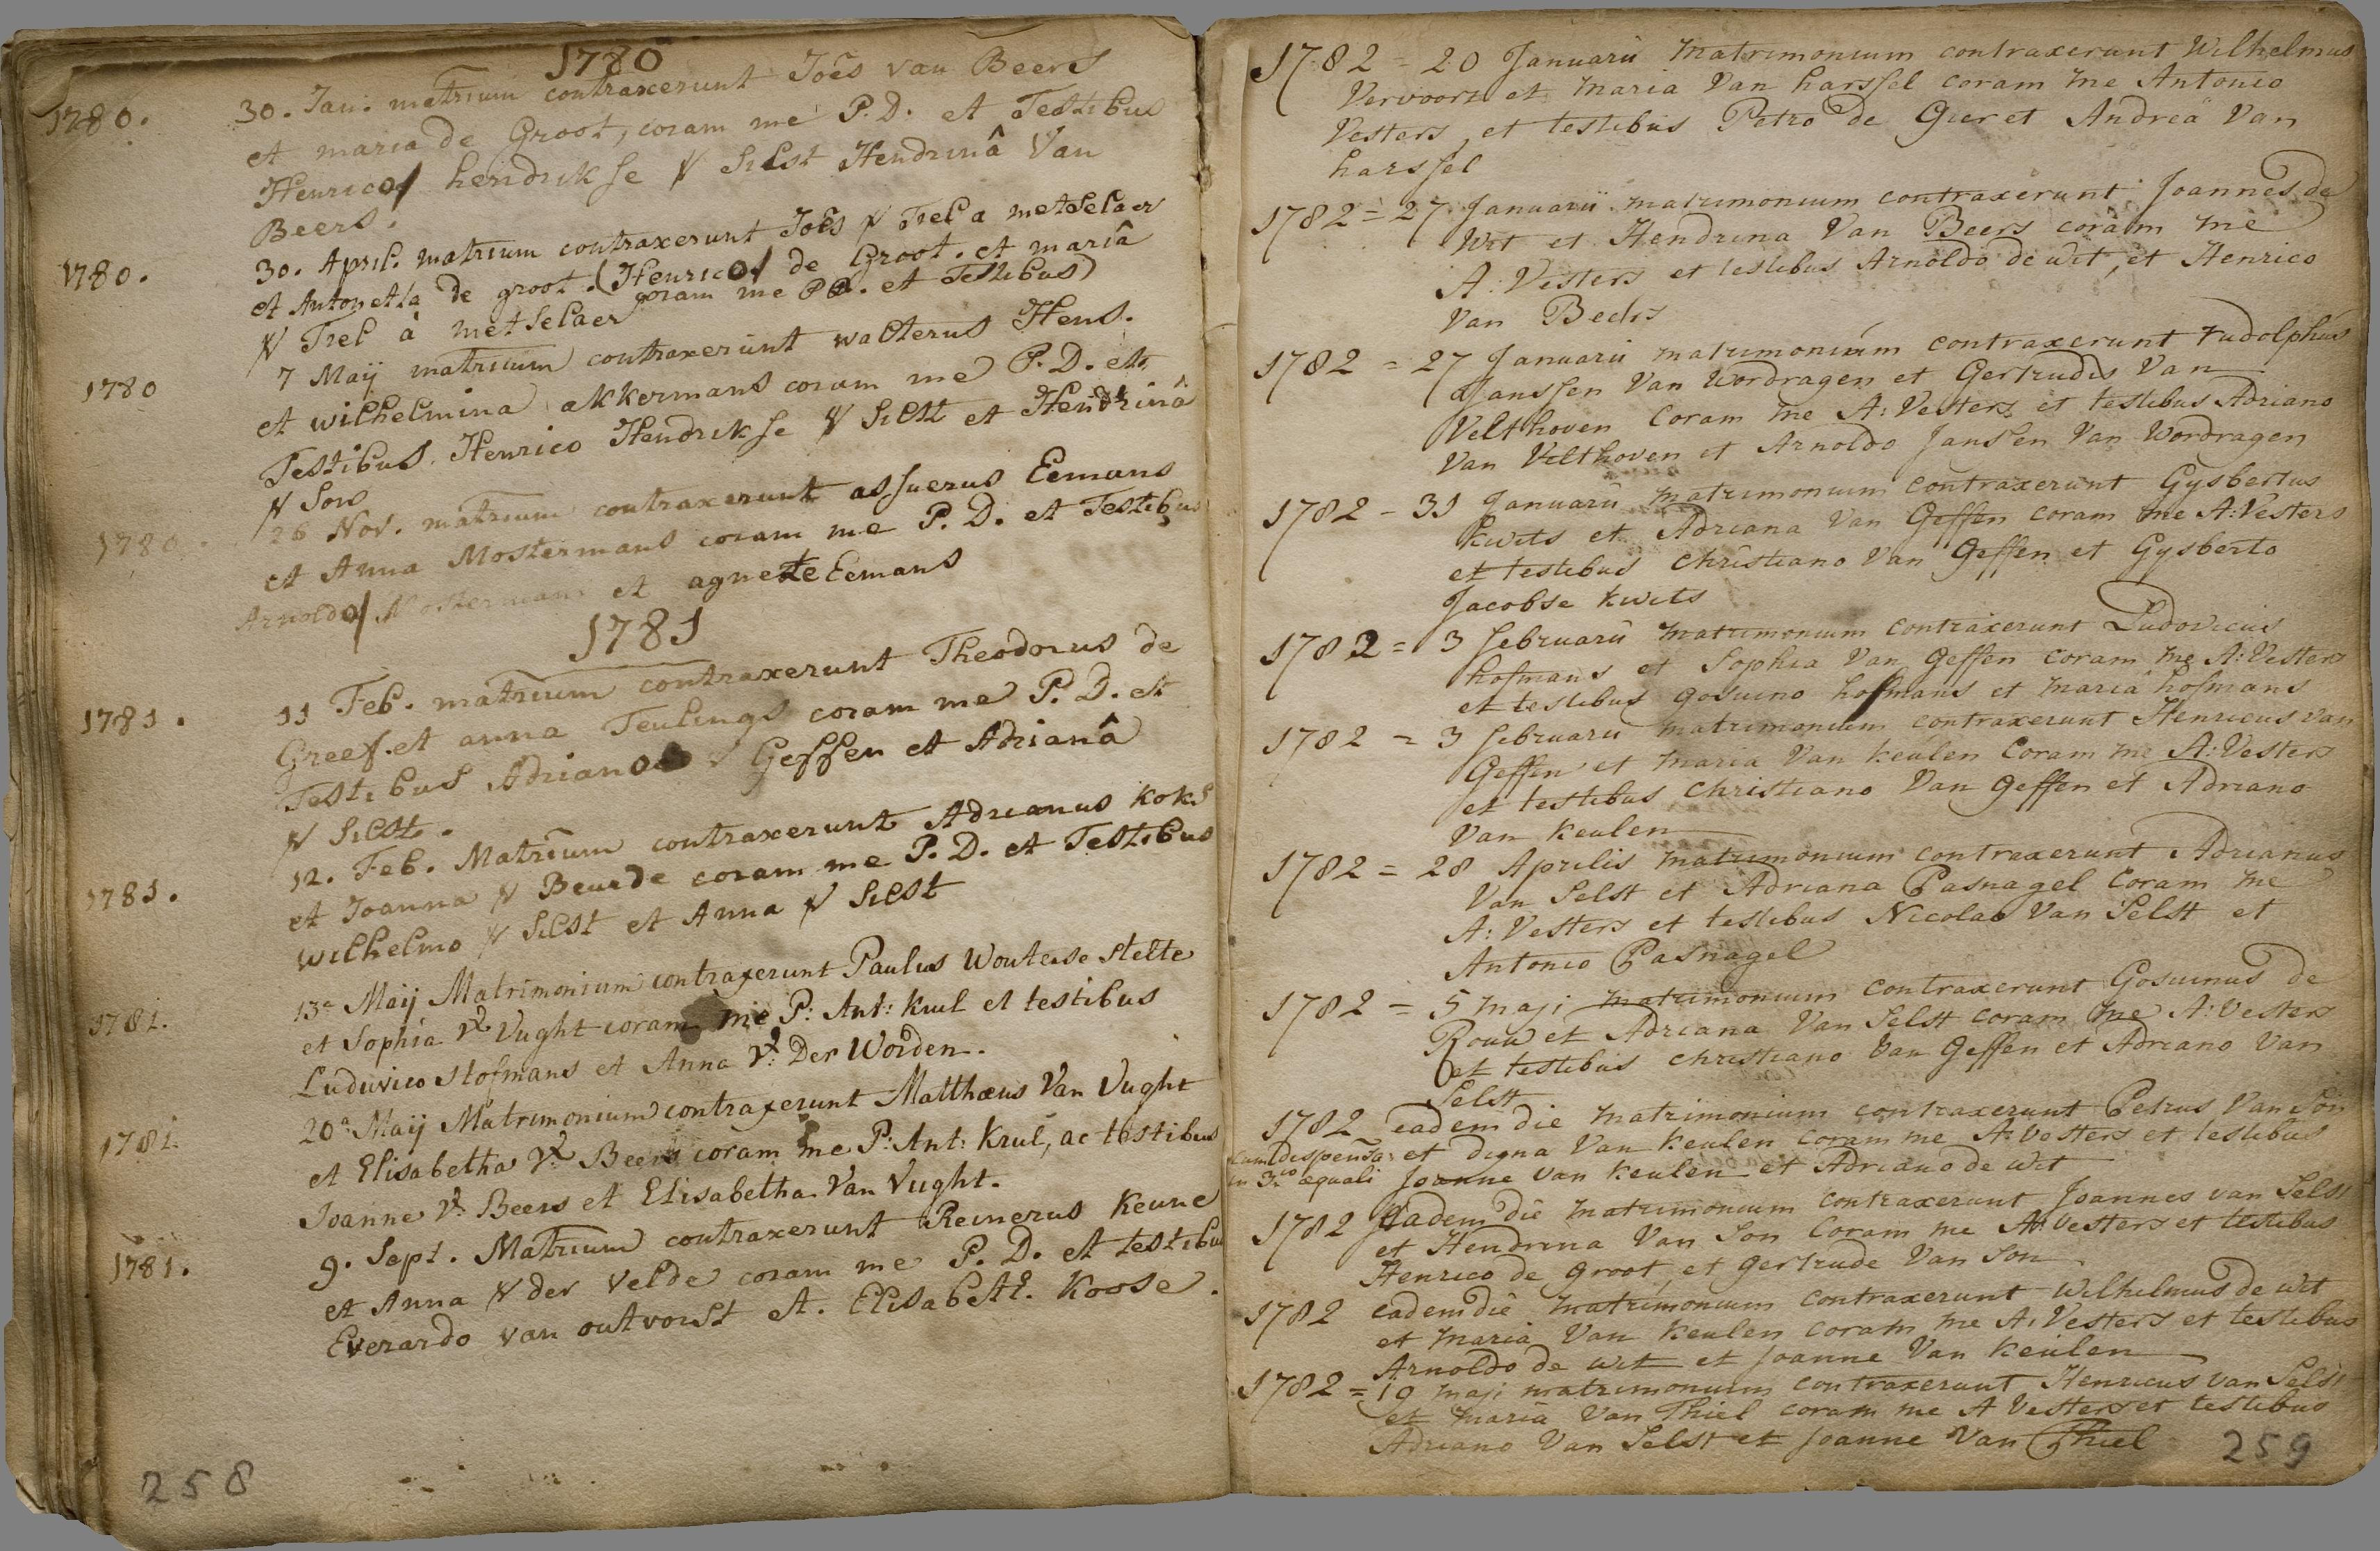 1780
1780. 30. Jan: matrium contraxerunt Joês van Beers
et maria de Groot, coram me P. D. et Testibus
Henrico hendrikse V Silst Hendrinâ Van
Beers.
1780. 30. April. matrium contraxerunt Joês V Tiel a metselaer
et Antonetta de groot. (Henrico de Groot. et mariâ
V Tiel à metselaer coram me P.D. et Testibus)
1780 7 Maÿ matrium contraxerunt walterus Hens.
et wilhelmina akkermans coram me P. D. et
Testibus Henrico Hendrikse V Silst et Hendrinâ
V Son
1780. 26 Nov. matrium contraxerunt assuerus Eemans
et Anna Mostermans coram me P. D. et Testibus
Arnoldo Mostermans et agnete Eemans
1781
1781. 11 Feb. matrium contraxerunt Theodorus de
Greef et anna Teulings coram me P. D. et
Testibus Adriano V Geffen et Adrianâ
V Silst.
1781. 12. Feb. Matrium contraxerunt Adrianus koks
et Joanna V Beurde coram me P. D. et Testibus
wilhelmo V Silst et Anna V Silst
1781. 13a Maij Matrimonium contraxerunt Paulus Wouterse stelte
et Sophia V. Vught coram me P: Ant: Krul et testibus
Luduvico Hofmans et Anna V: Der Worden.
1781. 20a Maij Matrimonium contraxerunt Matthæus Van Vught
et Elisabetha V. Beers coram me P: Ant: Krul, ac testibus
Joanne V: Beers et Elisabetha Van Vught.
1781. 9. Sept. Matrium contraxerunt Reinerus Keune
et Anna V der Velde coram me P. D. et testibus
Everardo van outvorst et. Elisabett. Koose.
258
1782 = 20 Januarii Matrimonium contraxerunt Wilhelmus
Vervoort et Maria Van harssel coram me Antonio
Vesters et testibus Petro de Gier et Andreâ Van
harssel
1782 = 27 Januarii matrimonium contraxerunt Joannes de
Wit et Hendrina Van Beers coram me
A: Vesters et testibus Arnoldo de wit, et Henrico
Van Beers
1782 = 27 Januarii matrimonium contraxerunt rudolphus
Janssen Van Wordragen et Gertrudis Van
Velthoven Coram me A: Vesters et testibus Adriano
Van Velthoven et Arnoldo Janssen Van Wordragen
1782 - 31 Januarii matrimonium contraxerunt Gysbertus
kwits et Adriana Van Geffen coram me A: Vesters
et testibus christiano Van Geffen et Gysberto
Jacobse kwits
1782 = 3 februarii matrimonium contraxerunt Ludovicus
hofmans et Sophia Van Geffen coram me A: Vesters
et testibus gosuino hofmans et maria hofmans
1782 = 3 februarii matrimonium contraxerunt Henricus van
Geffen et Maria Van Keulen Coram me A: Vesters
et testibus christiano Van geffen et Adriano
Van Keulen
1782 = 28 Aprilis matrimonium contraxerunt Adrianus
Van Selst et Adriana Pasnagel Coram me
A: Vesters et testibus Nicolao Van Selst et
Antonio Pasnagel
1782 = 5 maji matrimonium contraxerunt Gosuinus de
Rouw et Adriana Van Selst coram me A: Vesters
et testibus christiano Van Geffen et Adriano Van
Selst
1782 eadem die matrimonium contraxerunt Petrus Van Son
cum dispensa: et digna Van Keulen coram me A: Vesters et testibus
in 3io æquali Joanne van Keulen et Adriano de wit
1782 Eadem die matrimonium contraxerunt Joannes van Selst
et Hendrina Van Son Coram me A: Vesters et testibus
Henrico de groot et gertrude Van Son
1782 eadem die matrimonium contraxerunt wilhelmus de wit
et maria Van Keulen coram me A: Vesters et testibus
Arnoldo de wit et Joanne Van Keulen
1782 = 19 maji matrimonium contraxerunt Henricus van Selst
et maria Van Thiel coram me A Vesters et testibus
Adriano Van Selst et Joanne Van Thiel
259